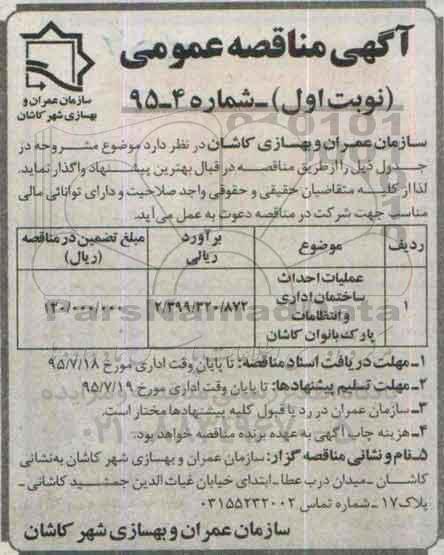 آگهی مناقصه عمومی
(نوبت اول) ـ شماره ۴ـ۹۵
سازمان عمران و
بهسازی شهر کاشان
سازمان عمران و بهسازی کاشان در نظر دارد موضوع مشروحه در
جدول ذیل را از طریق مناقصه در قبال بهترین پیشنهاد واگذار نماید.
لذا از کلیه متقاضیان حقیقی و حقوقی واجد صلاحیت و دارای توانائی مالی
مناسب جهت شرکت در مناقصه دعوت به عمل می‌آید.
ردیف موضوع برآورد ریالی مبلغ تضمین در مناقصه (ریال)
۱ عملیات احداث ساختمان اداری و انتظامات پارک بانوان کاشان ۲/۳۹۹/۳۲۰/۸۷۲ ۱۲۰/۰۰۰/۰۰۰
۱ـ مهلت دریافت اسناد مناقصه: تا پایان وقت اداری مورخ ۹۵/۷/۱۸
۲ـ مهلت تسلیم پیشنهادها: تا پایان وقت اداری مورخ ۹۵/۷/۱۹
۳ـ سازمان عمران در رد یا قبول کلیه پیشنهادها مختار است.
۴ـ هزینه چاپ آگهی به عهده برنده مناقصه خواهد بود.
۵ـ نام و نشانی مناقصه گزار: سازمان عمران و بهسازی شهر کاشان به‌نشانی
کاشان ـ میدان درب عطا ـ ابتدای خیابان غیاث الدین جمشید کاشانی ـ
پلاک ۱۷ ـ شماره تماس ۰۳۱۵۵۲۳۲۰۰۲
سازمان عمران و بهسازی شهر کاشان
ParsNamadData